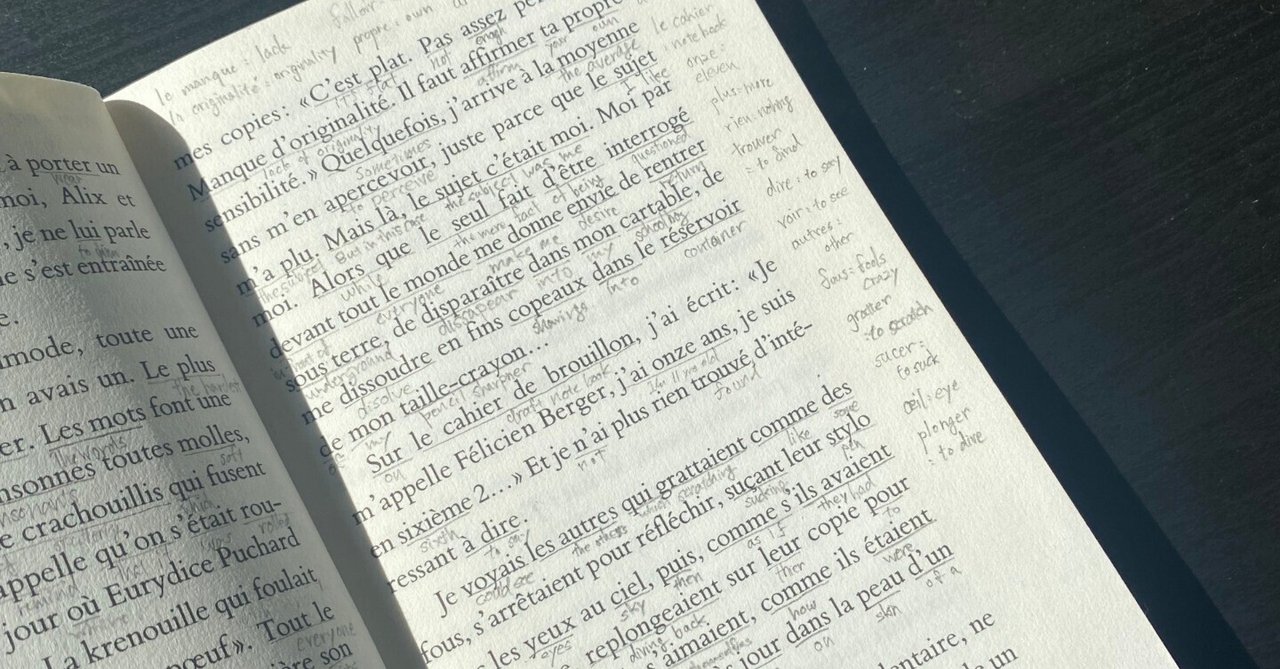 à porter un
moi, Alix et
, je ne lui parle
e s'est entraînée
e.
imode, toute une
n avais un. Le plus
er. Les mots font une
nsonnes toutes molles,
e crachouillis qui fusent
appelle qu'on s'était rou-
jour où Eurydice Puchard
La krenouille qui foulait
nœuf». Tout le
everyone
ière son
le manque : lack
la originalité : originality propre : own
mes copies : «C'est plat. Pas assez
it's flat not enough
Manque d'originalité. Il faut affirmer ta propre
lack of originality affirm your own
sensibilité.» Quelquefois, j'arrive à la moyenne
sometimes the average
sans m'en apercevoir, juste parce que le sujet
to perceive I like
m'a plu. Mais là, le sujet c'était moi. Moi par
the subject But in this case the subject was me
moi. Alors que le seul fait d'être interrogé
while the mere fact of being questioned
devant tout le monde me donne envie de rentrer
everyone make me desire return
sous terre, de disparaître dans mon cartable, de
underground disappear into my
me dissoudre en fins copeaux dans le réservoir
dissolve shavings into container
de mon taille-crayon…
my pencil sharpner
Sur le cahier de brouillon, j'ai écrit : «Je
on draft note book
m'appelle Félicien Berger, j'ai onze ans, je suis
I'm 11 years old
en sixième 2….» Et je n'ai plus rien trouvé d'inté-
sixth not found
ressant à dire.
to say
Je voyais les autres qui grattaient comme des
could see the others which scratching like some
fous, s'arrêtaient pour réfléchir, suçant leur stylo
sucking pen
les yeux au ciel, puis, comme s'ils avaient
eyes sky then as if they had
replongeaient sur leur copie pour
diving back their to
s'aimaient, comme ils étaient
how were
jour dans la peau d'un
on skn of a
lentaire, ne
un
le cahier
: notebook
onze :
eleven
plus = more
rien : nothing
trouver
= to find
dire : to say
voir : to see
autres =
other
fous = fools
crazy
gratter
: to scratch
sucer :
to suck
œil = eye
plonger
: to dive